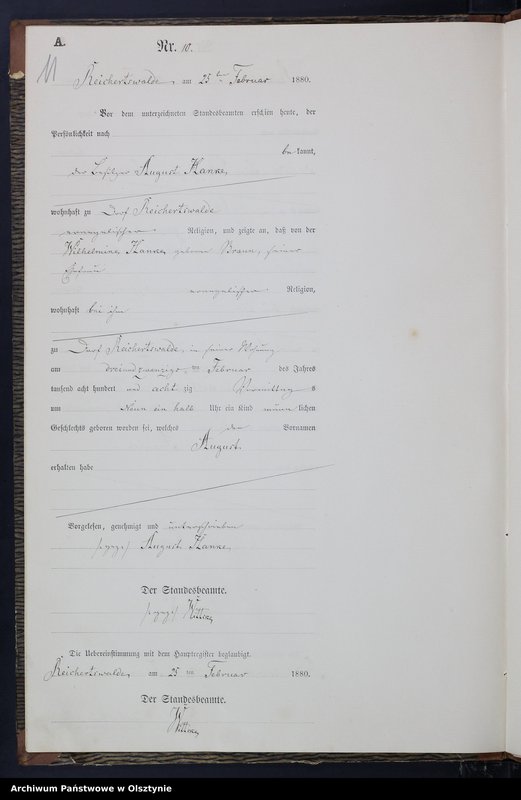 A.
Nr. 10.
11
Reichertswalde, am 25ten Februar 1880.
Vor dem unterzeichneten Standesbeamten erschien heute, der
Persönlichkeit nach
be kannt,
der Besitzer August Hanke,
wohnhaft zu Dorf Reichertswalde
evangelischer Religion, und zeigte an, daß von der
Wilhelmine Hanke, geborene Braun, seiner
Ehefrau
evangelischer Religion,
wohnhaft bei ihm
zu Dorf Reichertswalde, in seiner Wohnung
am dreiundzwanzigsten Februar des Jahres
tausend acht hundert und acht zig Vormittag s
um Neun ein halb Uhr ein Kind männ lichen
Geschlechts geboren worden sei, welches den Vornamen
August
erhalten habe
Vorgelesen, genehmigt und unterschrieben
August Hanke,
Der Standesbeamte.
Die Uebereinstimmung mit dem Hauptregister beglaubigt.
Reichertswalde, am 25 ten Februar 1880.
Der Standesbeamte.
Archiwum Państwowe w Olsztynie